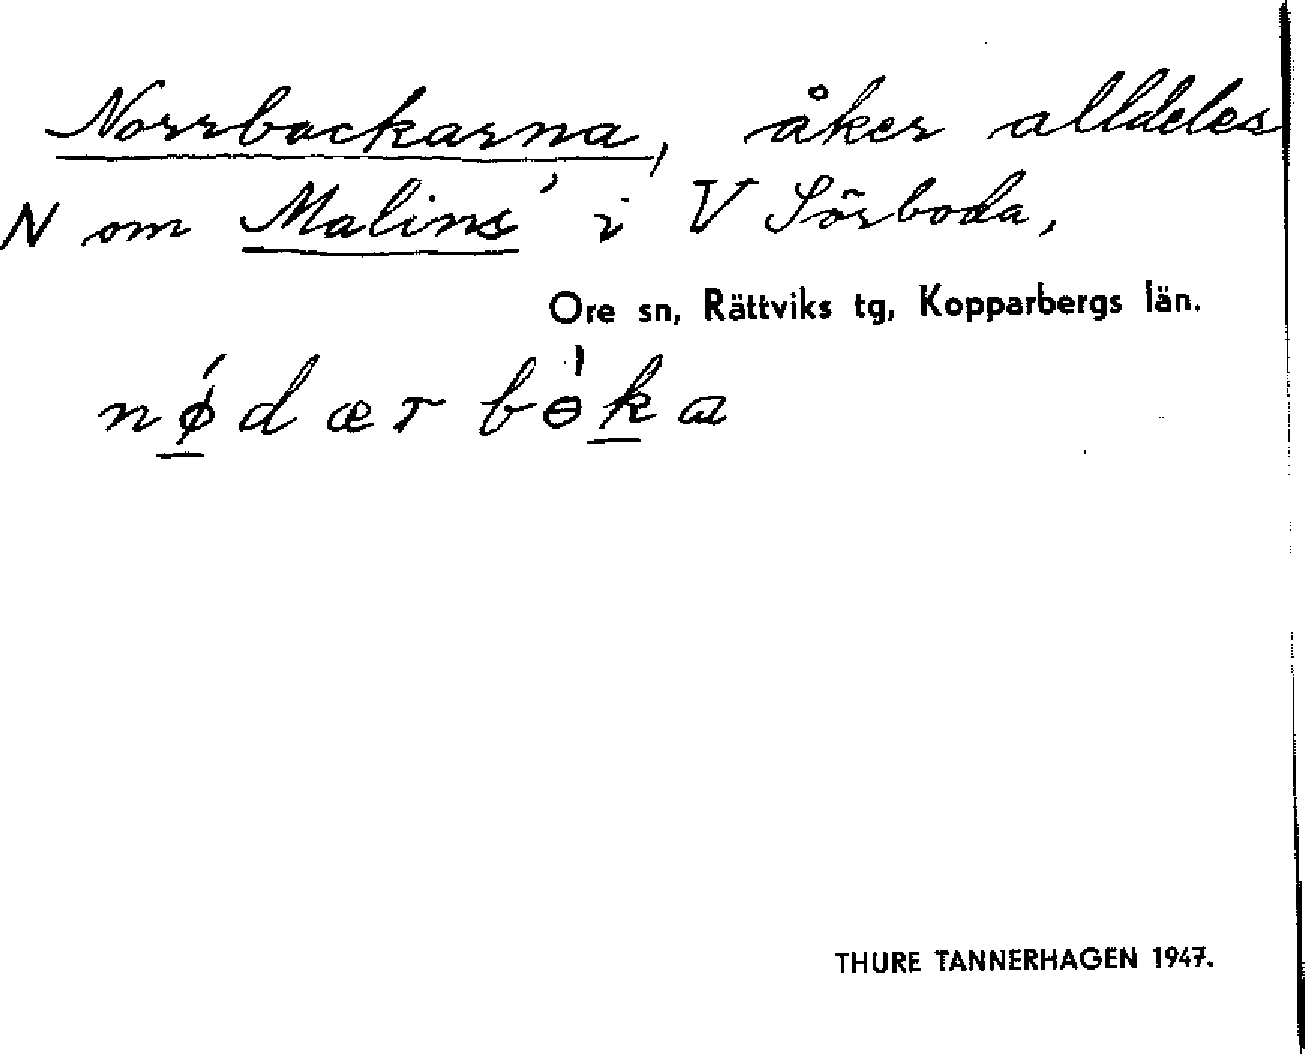 Norrbackarna, åker alldeles
N om Malins' i V Sörboda,
Ore sn, Rättviks tg, Kopparbergs län.
nǿdær bɵ̀ka
THURE TANNERHAGEN 1947.